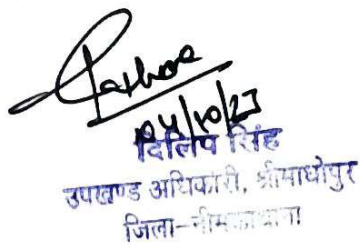 04/10/23
दिलिप सिंह
उपखण्ड अधिकारी, श्रीमाधोपुर
जिला-नीमकाथाना